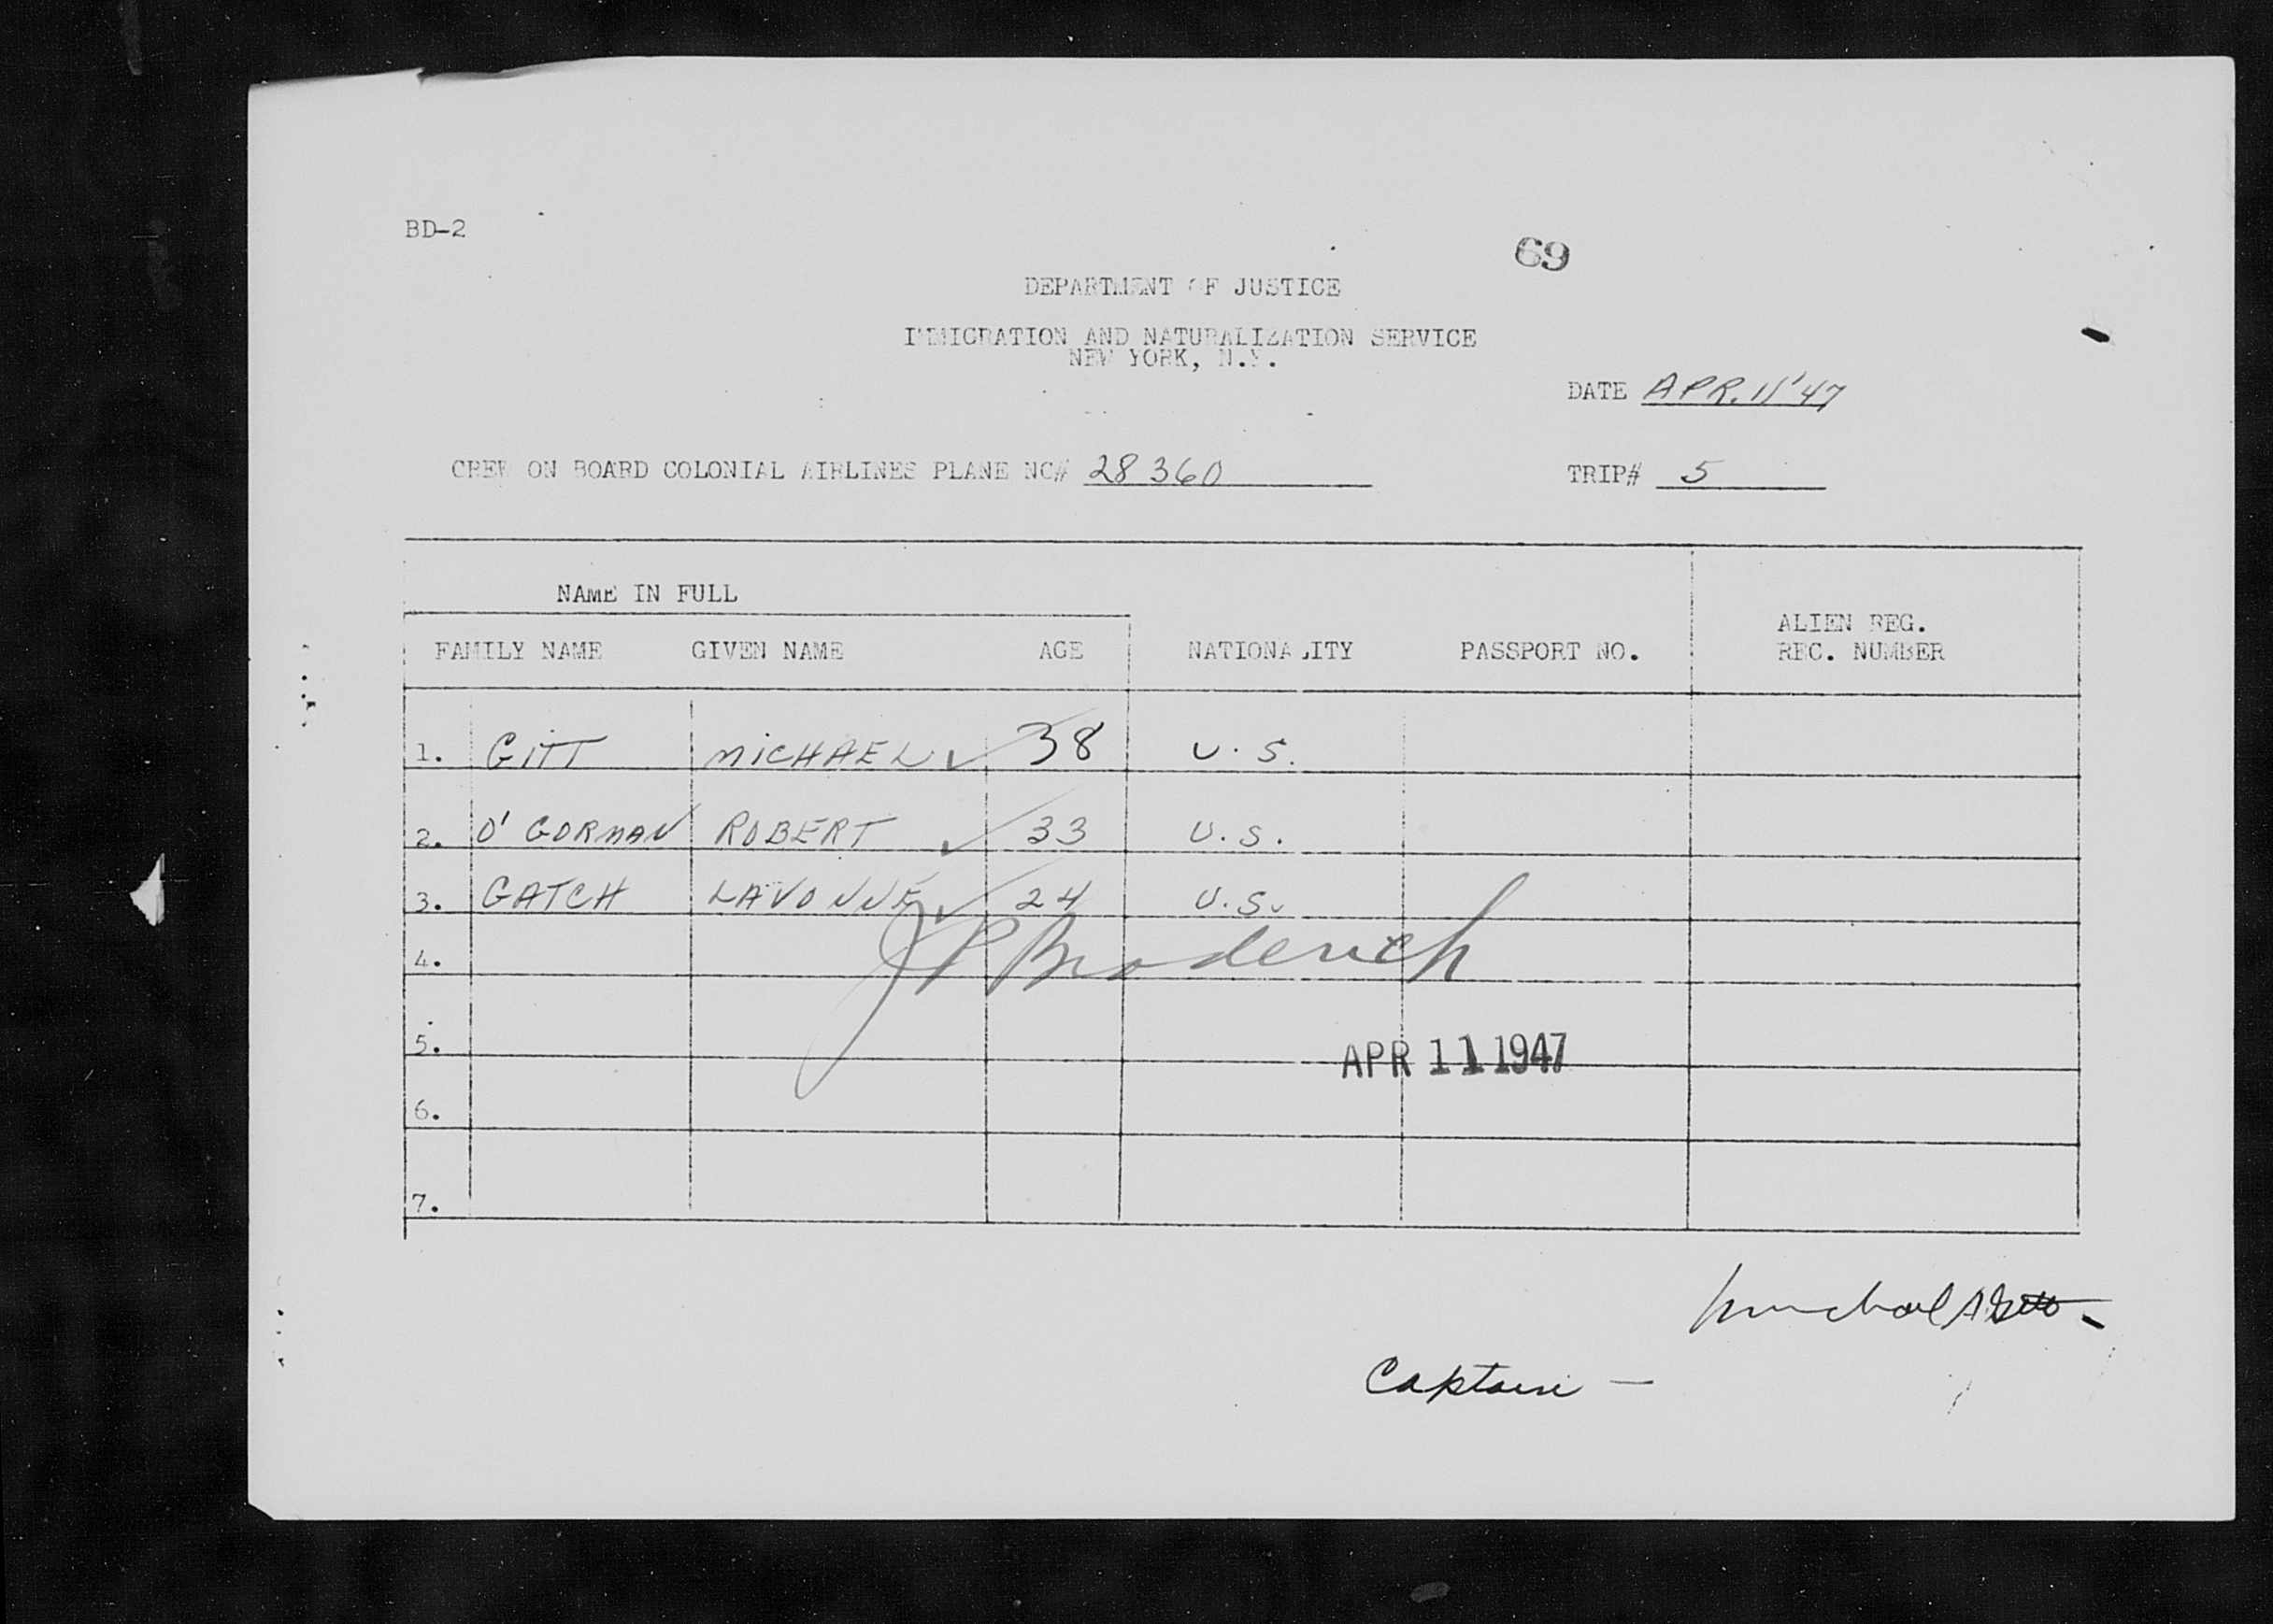 BD-2
69
DEPARTMENT OF JUSTICE
IMMIGRATION AND NATURALIZATION SERVICE
NEW YORK, N.Y.
DATE APR. 11'47
CREW ON BOARD COLONIAL AIRLINES PLANE NC# 28360
TRIP# 5
NAME IN FULL
FAMILY NAME GIVEN NAME AGE NATIONALITY PASSPORT NO. ALIEN REG.
REC. NUMBER
1. GITT MICHAEL ✓ 38 U.S.
2. O'GORMAN ROBERT ✓ 33 U.S.
3. GATCH LAVONNE ✓ 24 U.S.
4. JP Broderick
5. APR 11 1947
6.
7.
Michael A Gitt
Captain —